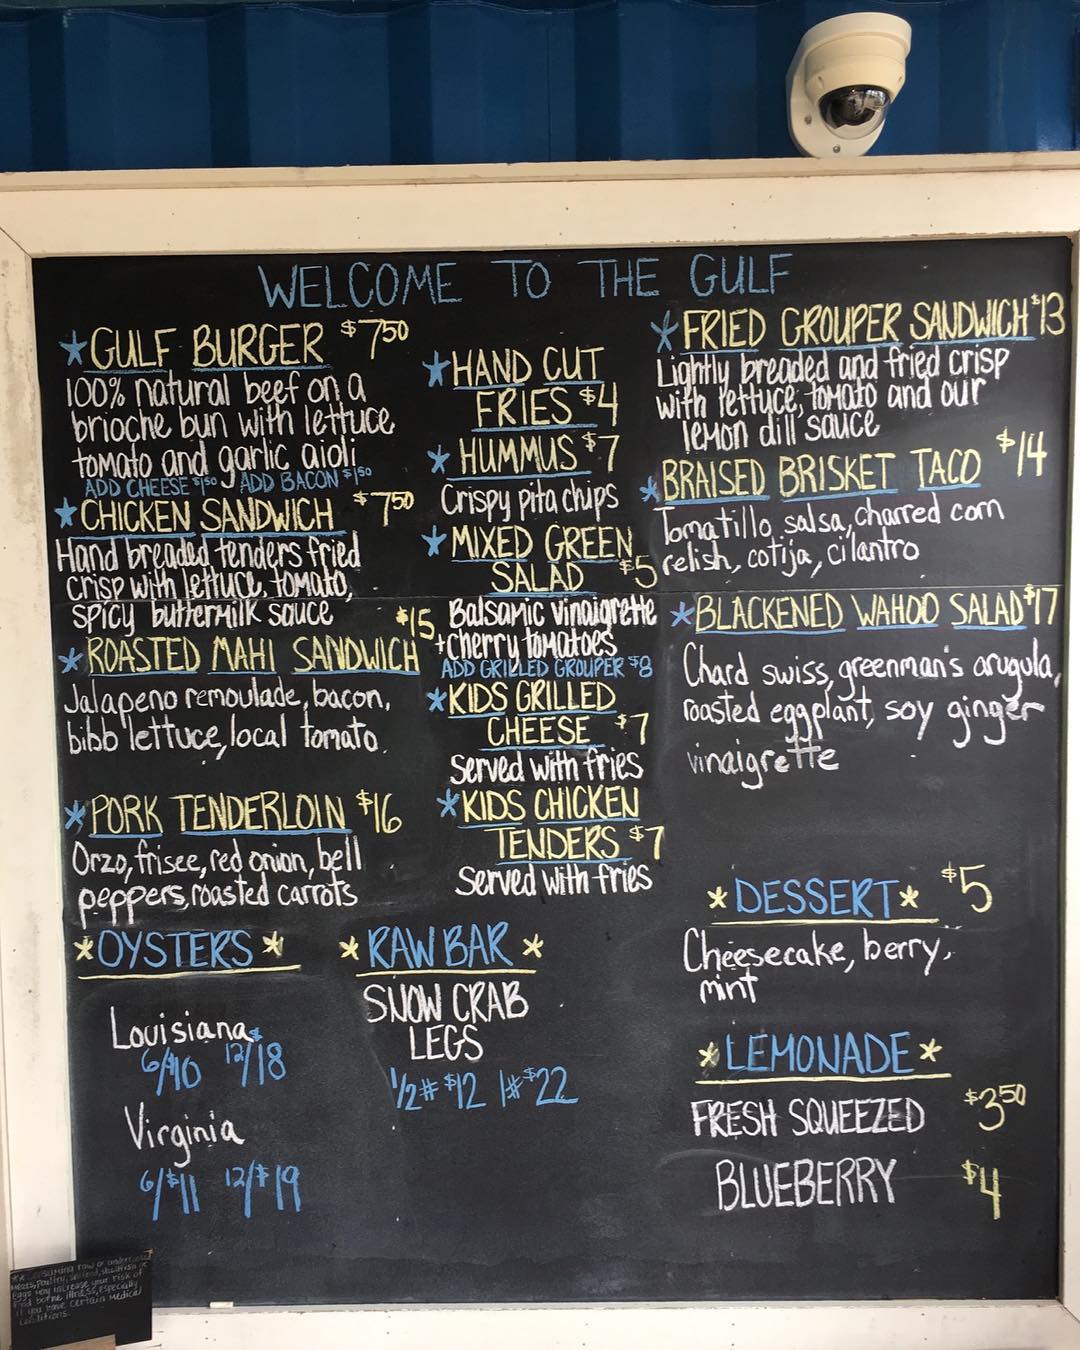 WELCOME TO THE GULF
GULF BURGER $7.50
100% natural beef on a
brioche bun with lettuce
tomato and garlic aioli
ADD CHEESE $1.50 ADD BACON $1.50
CHICKEN SANDWICH $7.50
Hand breaded tenders fried
crisp with lettuce, tomato,
spicy buttermilk sauce
$15
ROASTED MAHI SANDWICH
Jalapeno remoulade, bacon,
bibb lettuce, local tomato.
PORK TENDERLOIN $16
Orzo, frisee, red onion, bell
peppers, roasted carrots
*OYSTERS*
Louisiana
6/$10 12/$18
Virginia
6/$11 12/$19
HAND CUT
FRIES $4
HUMMUS $7
Crispy pita chips
MIXED GREEN
SALAD $5
Balsamic vinaigrette
+cherry tomatoes
ADD GRILLED GROUPER $8
KIDS GRILLED
CHEESE $7
Served with fries
KIDS CHICKEN
TENDERS $7
Served with fries
*RAW BAR*
SNOW CRAB
LEGS
1/2# $12 1# $22
FRIED GROUPER SANDWICH $13
Lightly breaded and fried crisp
with lettuce, tomato and our
lemon dill sauce
BRAISED BRISKET TACO $14
Tomatillo salsa, charred corn
relish, cotija, cilantro
BLACKENED WAHOO SALAD $17
Chard swiss, greenman's arugula,
roasted eggplant, soy ginger
vinaigrette
*DESSERT* $5
Cheesecake, berry,
mint
*LEMONADE*
FRESH SQUEEZED $3.50
BLUEBERRY $4
raw or undercooked
Meats, Poultry,
Eggs may increase your risk of
illness, Especially
if you have certain Medical
Conditions